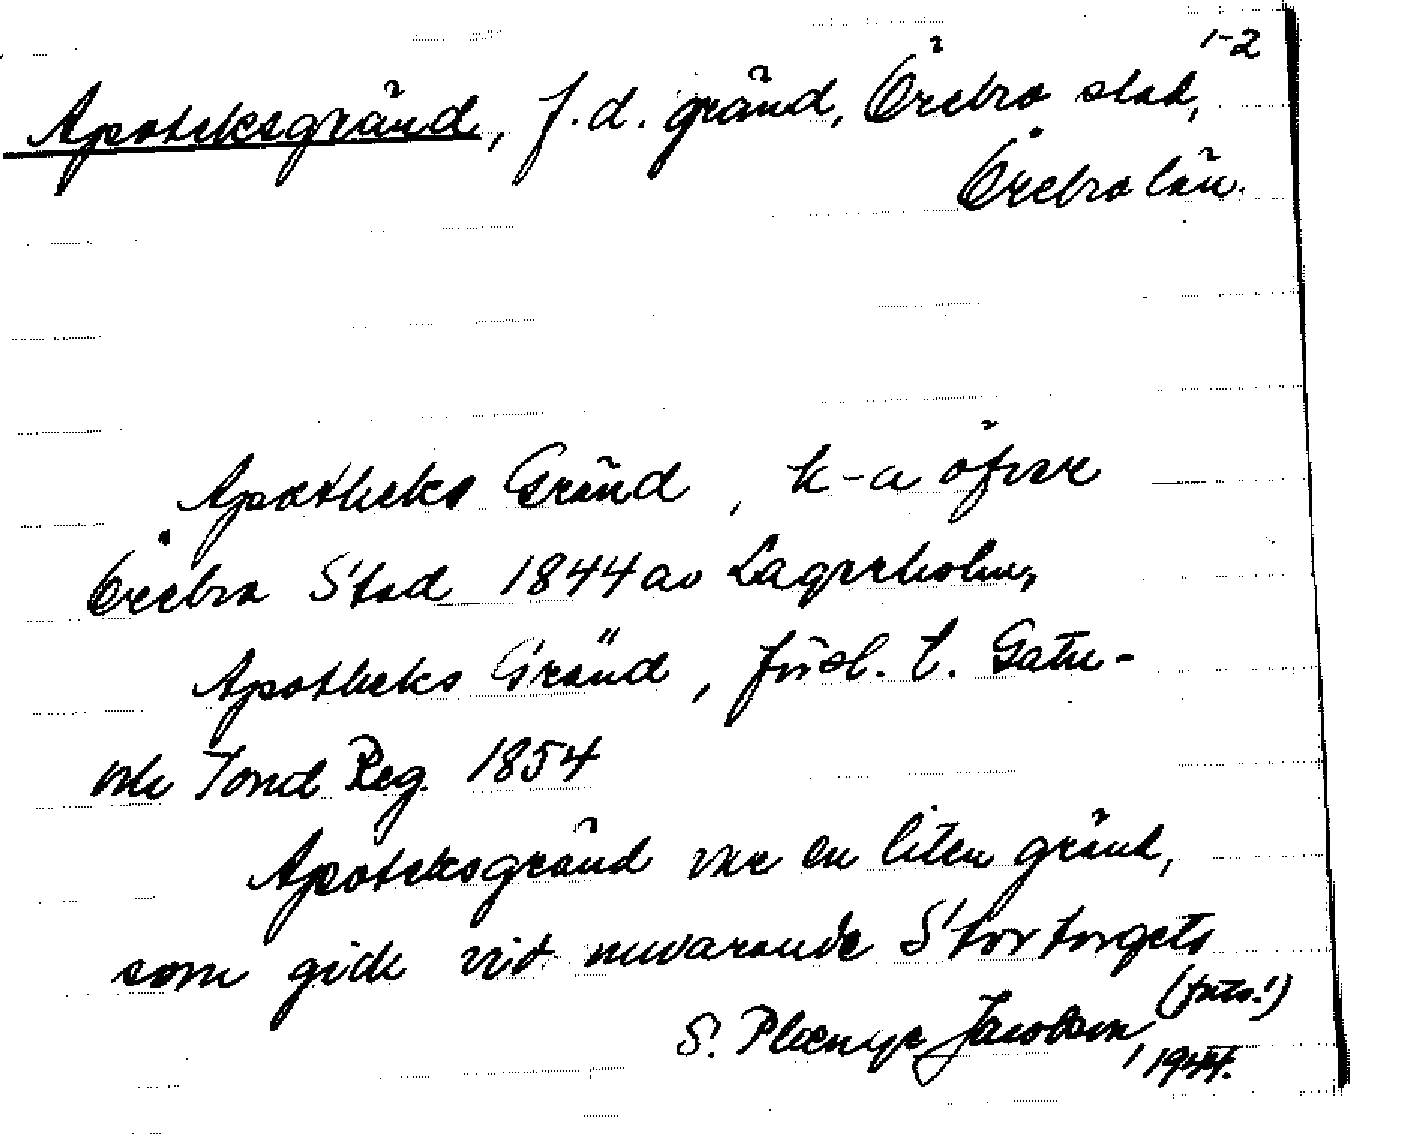 1-2
Apoteksgränd, f.d. gränd, Örebro stad,
Örebro län.
Apotheks Gränd, k-a öfver
Örebro Stad 1844 av Lagerholm,
Apotheks Gränd, förl. t. Gatu-
och Tomd Reg. 1854
Apoteksgränd var en liten gränd,
som gick vid nuvarande Stortorgets
(forts.!)
S. Jacobson, 1944.